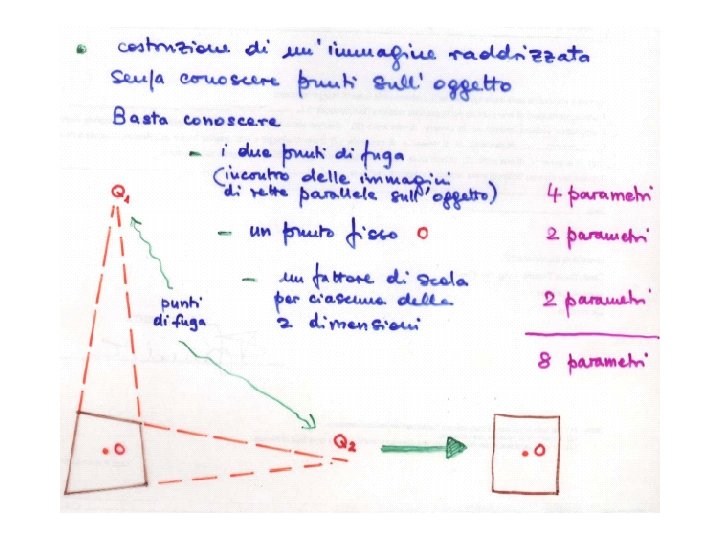 • costruzione di un' immagine raddrizzata
senza conoscere punti sull' oggetto
Basta conoscere
- i due punti di fuga
(incontro delle immagini
di rette parallele sull' oggetto)
4 parametri
- un punto fisso O
2 parametri
- un fattore di scala
per ciascuna delle
2 dimensioni
2 parametri
8 parametri
Q1
punti
di fuga
Q2
O
O